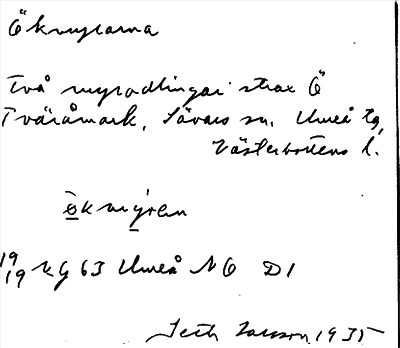 Ökmyrarna
Två myrodlingar strax Ö
Tväråmark, Sävars sn, Umeå tg,
Västerbottens l.
ökmýran
19/19 kg 63 Umeå NO D1
Seth Larsson 1935